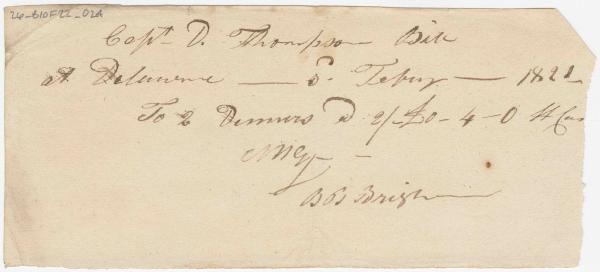 26-B10F22_02A
Capt D. Thompson Bill
At Delaware — — 1821
To 2 Dinners @ 2/ £0-4-0 H Cur
B B Brigham